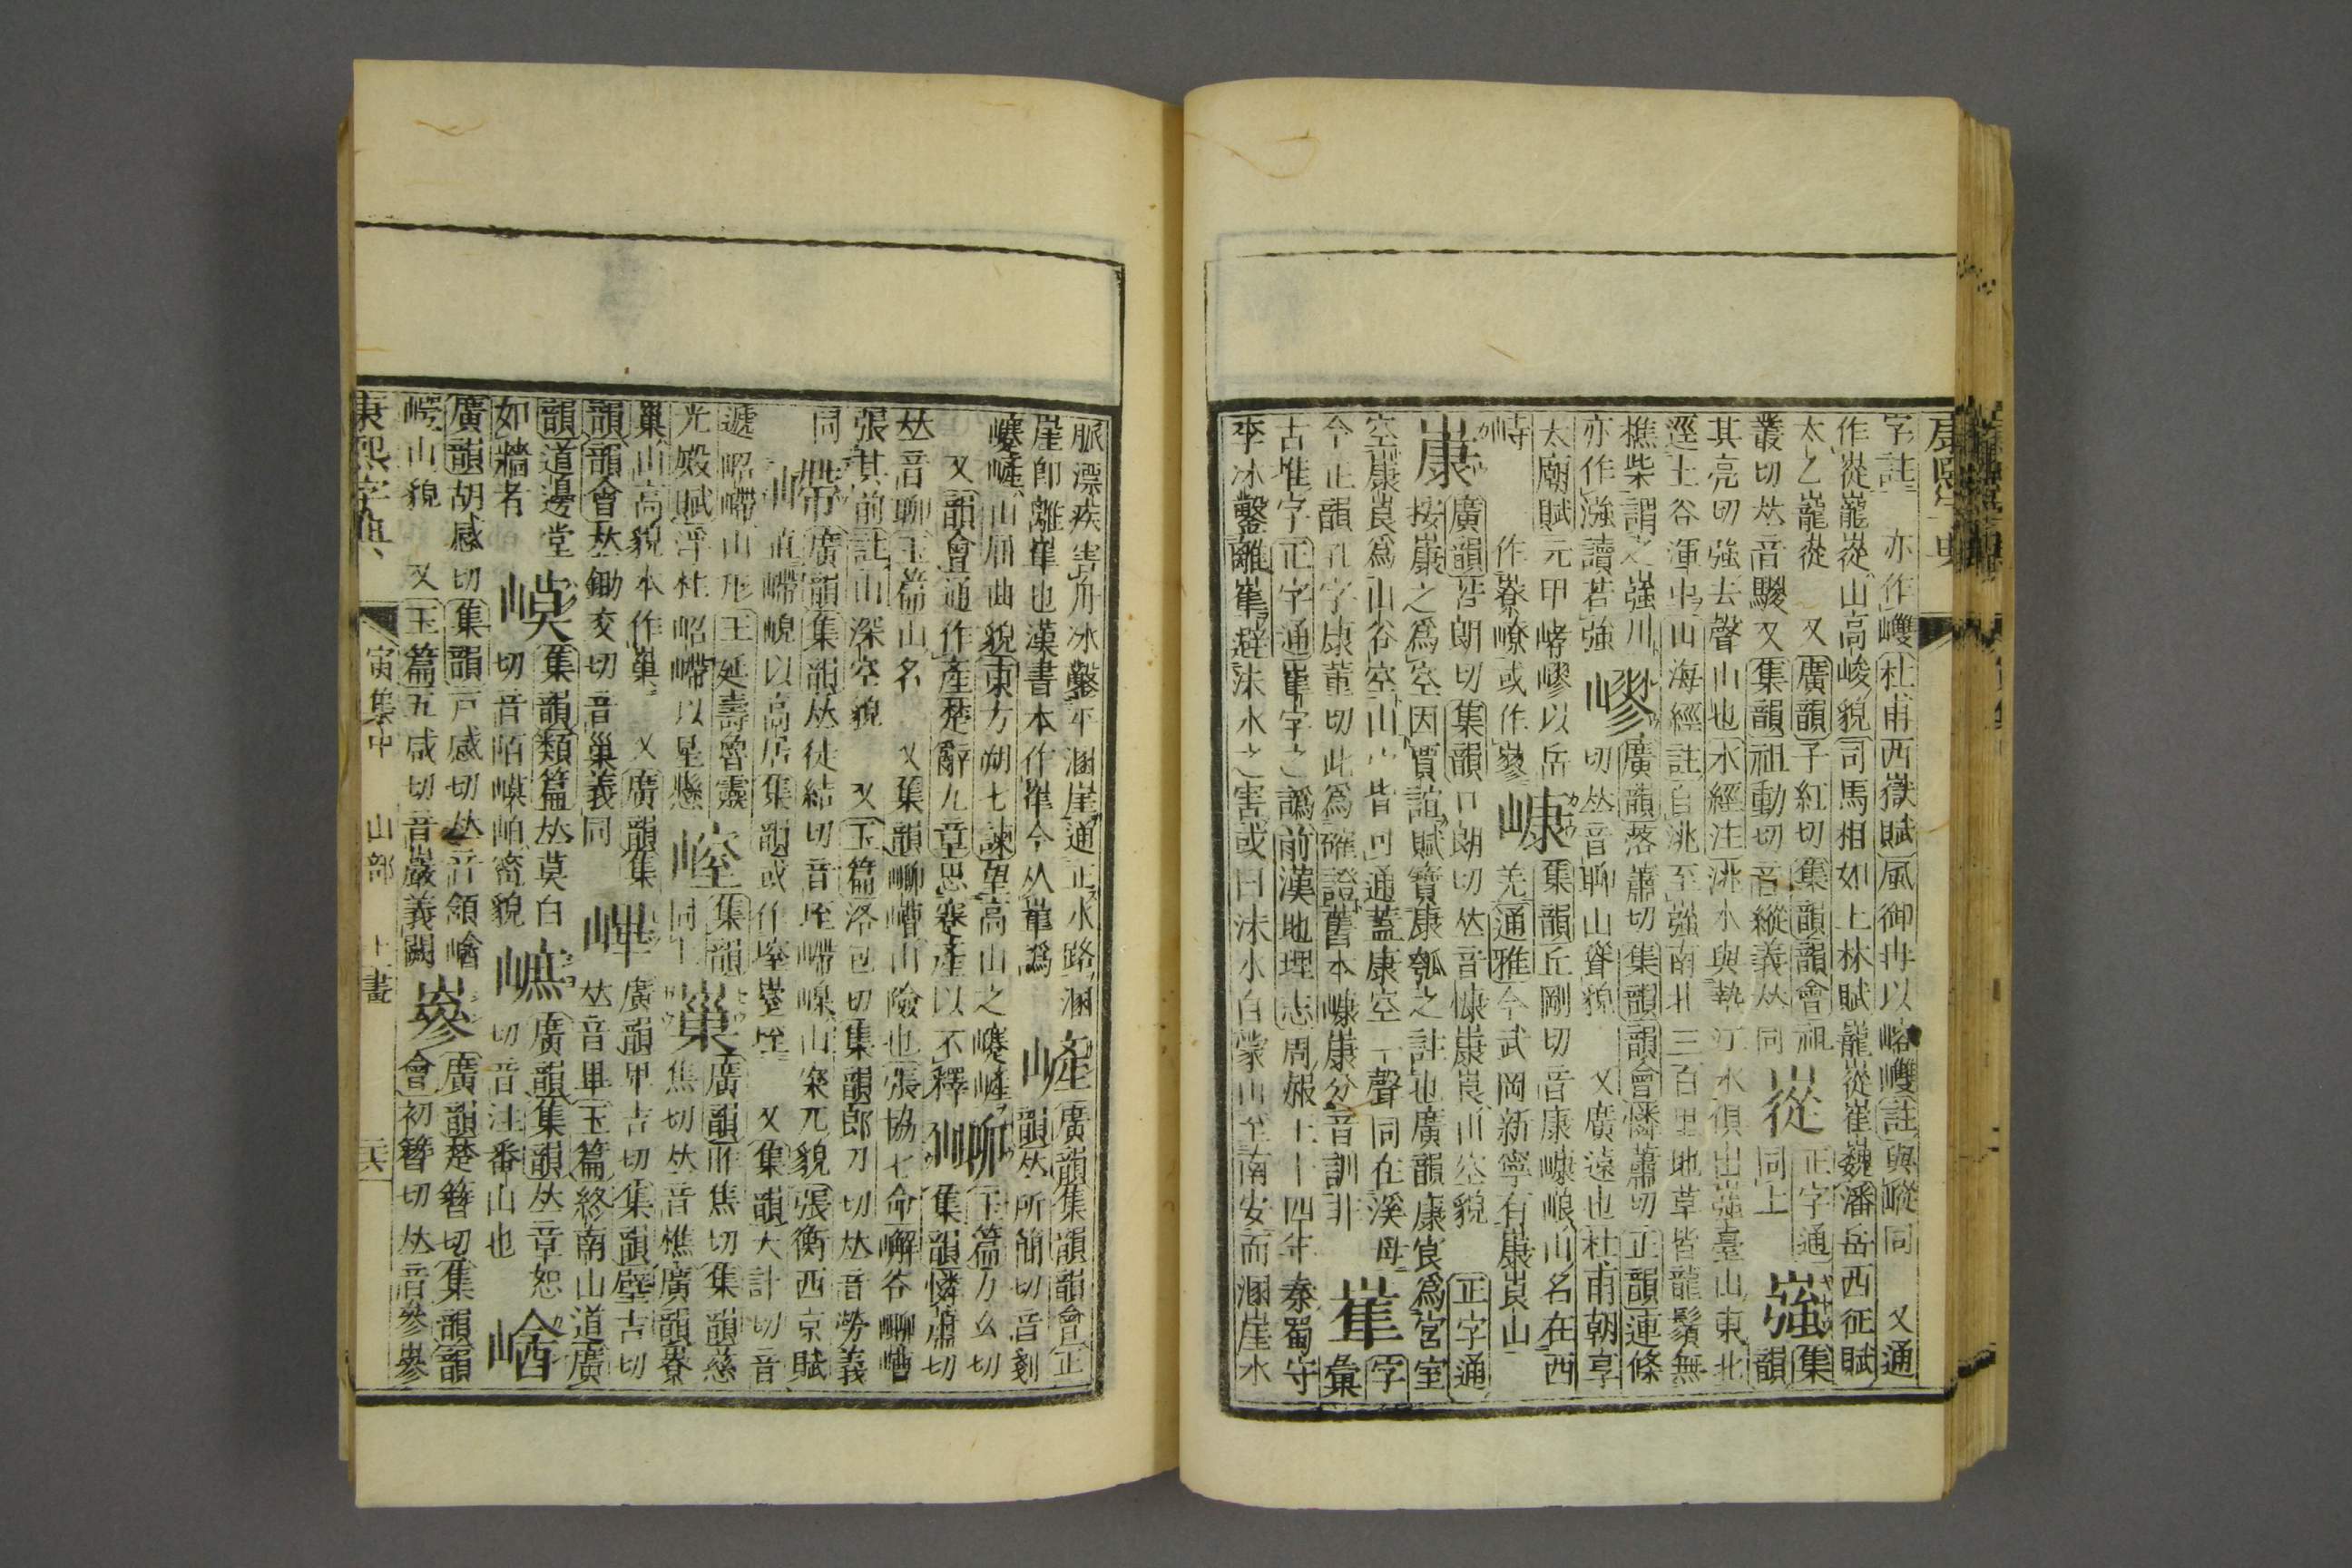 康熙字典
字註 亦作㠉杜甫西嶽賦風御冉以㟯㠉註與嵷同 又通
作嵸巃嵸山高峻貌司馬相如上林賦巃嵸崔巍潘岳西征賦
太乙巃嵸 又廣韻子紅切集韻韻會祖
叢切𠀤音騣又集韻祖動切音縱義𠀤同
嵸 正字通同上
嵹 集韻
其亮切強去聲山也水經注洮水與墊江水俱出嵹臺山東北
逕土谷渾中山海經註自洮至嵹南北三百里地草皆龍鬚無
樵柴謂之嵹川
亦作漒讀若強
嵺 廣韻落蕭切集韻韻會憐蕭切正韻連條
切𠀤音聊山聳貌 又廣遠也杜甫朝享
太廟賦元甲㟼嵺以岳
峙 作嶚嶛或作㟉
嵻 集韻丘剛切音康嵻㟍山名在西
羌通雅今武岡新寧有㝩㝗山
㝩 廣韻苦朗切集韻口朗切𠀤音慷㝩㝗山空貌 正字通
按㝩之爲空因賈誼賦寶康瓠之註也廣韻康㝗爲宮室
空㝩㝗爲山谷空山宀皆可通蓋康空一聲同在溪母
今正韻孔字康董切此爲確證舊本嵻㝩分音訓非
嵟 字彙
古堆字正字通嵟字之譌前漢地理志周赧王十四年秦蜀守
李冰鑿離嵟避沫水之害或曰沫水自蒙山至南安而溷崖水
脈漂疾害舟冰鑿平溷崖通正水路溷
崖卽離嵟也漢書本作嵟今从雈譌
嵼 廣韻集韻韻會正韻𠀤所簡切音剗
㠊嵼山屈曲貌東方朔七諫望高山之㠊嵼
又韻會通作產楚辭九章思蹇產以不釋
㟹 玉篇力幺切集韻憐蕭切
𠀤音聊玉篇山名 又集韻㟹嶆山險也張協七命嶰谷㟹嶆
張其前註山深空貌 又玉篇洛包切集韻郎刀切𠀤音勞義
同
嵽 廣韻集韻𠀤徒結切音垤嵽嵲山突兀貌張衡西京賦
直嵽嵲以高居集韻或作㙜㙜垤 又集韻大計切音
遞㟭嵽山形王延壽魯靈
光殿賦浮柱㟭嵽以星懸
㟧 集韻同上
巢 廣韻鉏焦切集韻慈
焦切𠀤音樵廣韻嶚
巢山高貌本作巢 又廣韻集
韻韻會𠀤鋤交切音巢義同
㟁 廣韻𤰞吉切集韻壁吉切
𠀤音畢玉篇終南山道廣
韻道邊堂
如牆者
嗼 集韻類篇𠀤莫白
切音陌嗼岶密貌
嫬 廣韻集韻𠀤章恕
切音注番山也
嵢
廣韻胡感切集韻戸感切𠀤音頷嵢
㟧山貌 又玉篇五咸切音巖義闕
嵾 廣韻楚簪切集韻韻
會初簪切𠀤音參嵾
康熙字典 寅集中 山部 十一畫 三六